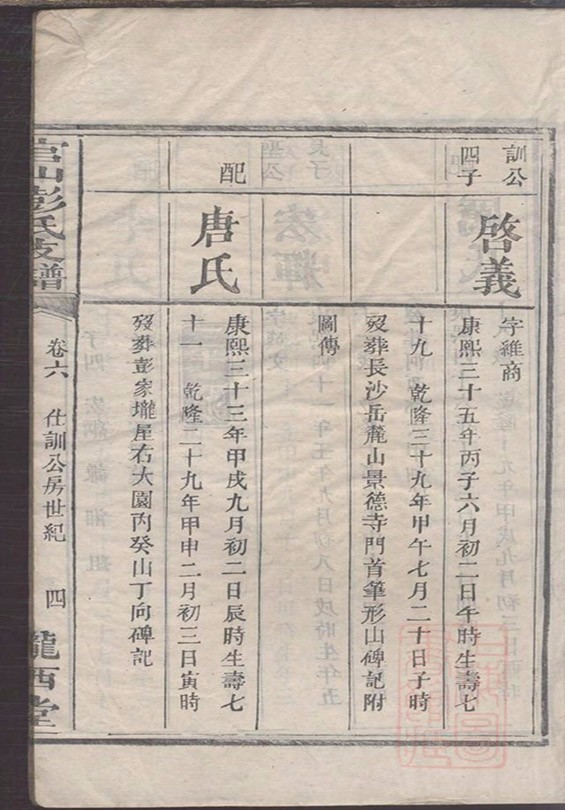 訓公
四子
啓義
字維商
康熙三十五年丙子六月初二日午時生壽七
十九 乾隆三十九年甲午七月二十日子時
歿葬長沙岳麓山景德寺門首筆形山碑記附
圖傳
配
唐氏
康熙三十三年甲戌九月初二日辰時生壽七
十一 乾隆二十九年甲申二月初三日寅時
歿葬彭家壠屋右大園內癸山丁向碑記
官山彭氏支譜
卷六 仕訓公房世紀 四
隴西堂